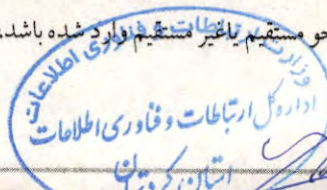 حو مستقیم یاغیر مستقیم وارد شده باشد.
وزارت ارتباطات و فناوری اطلاعات
اداره کل ارتباطات و فناوری اطلاعات
استان کردستان